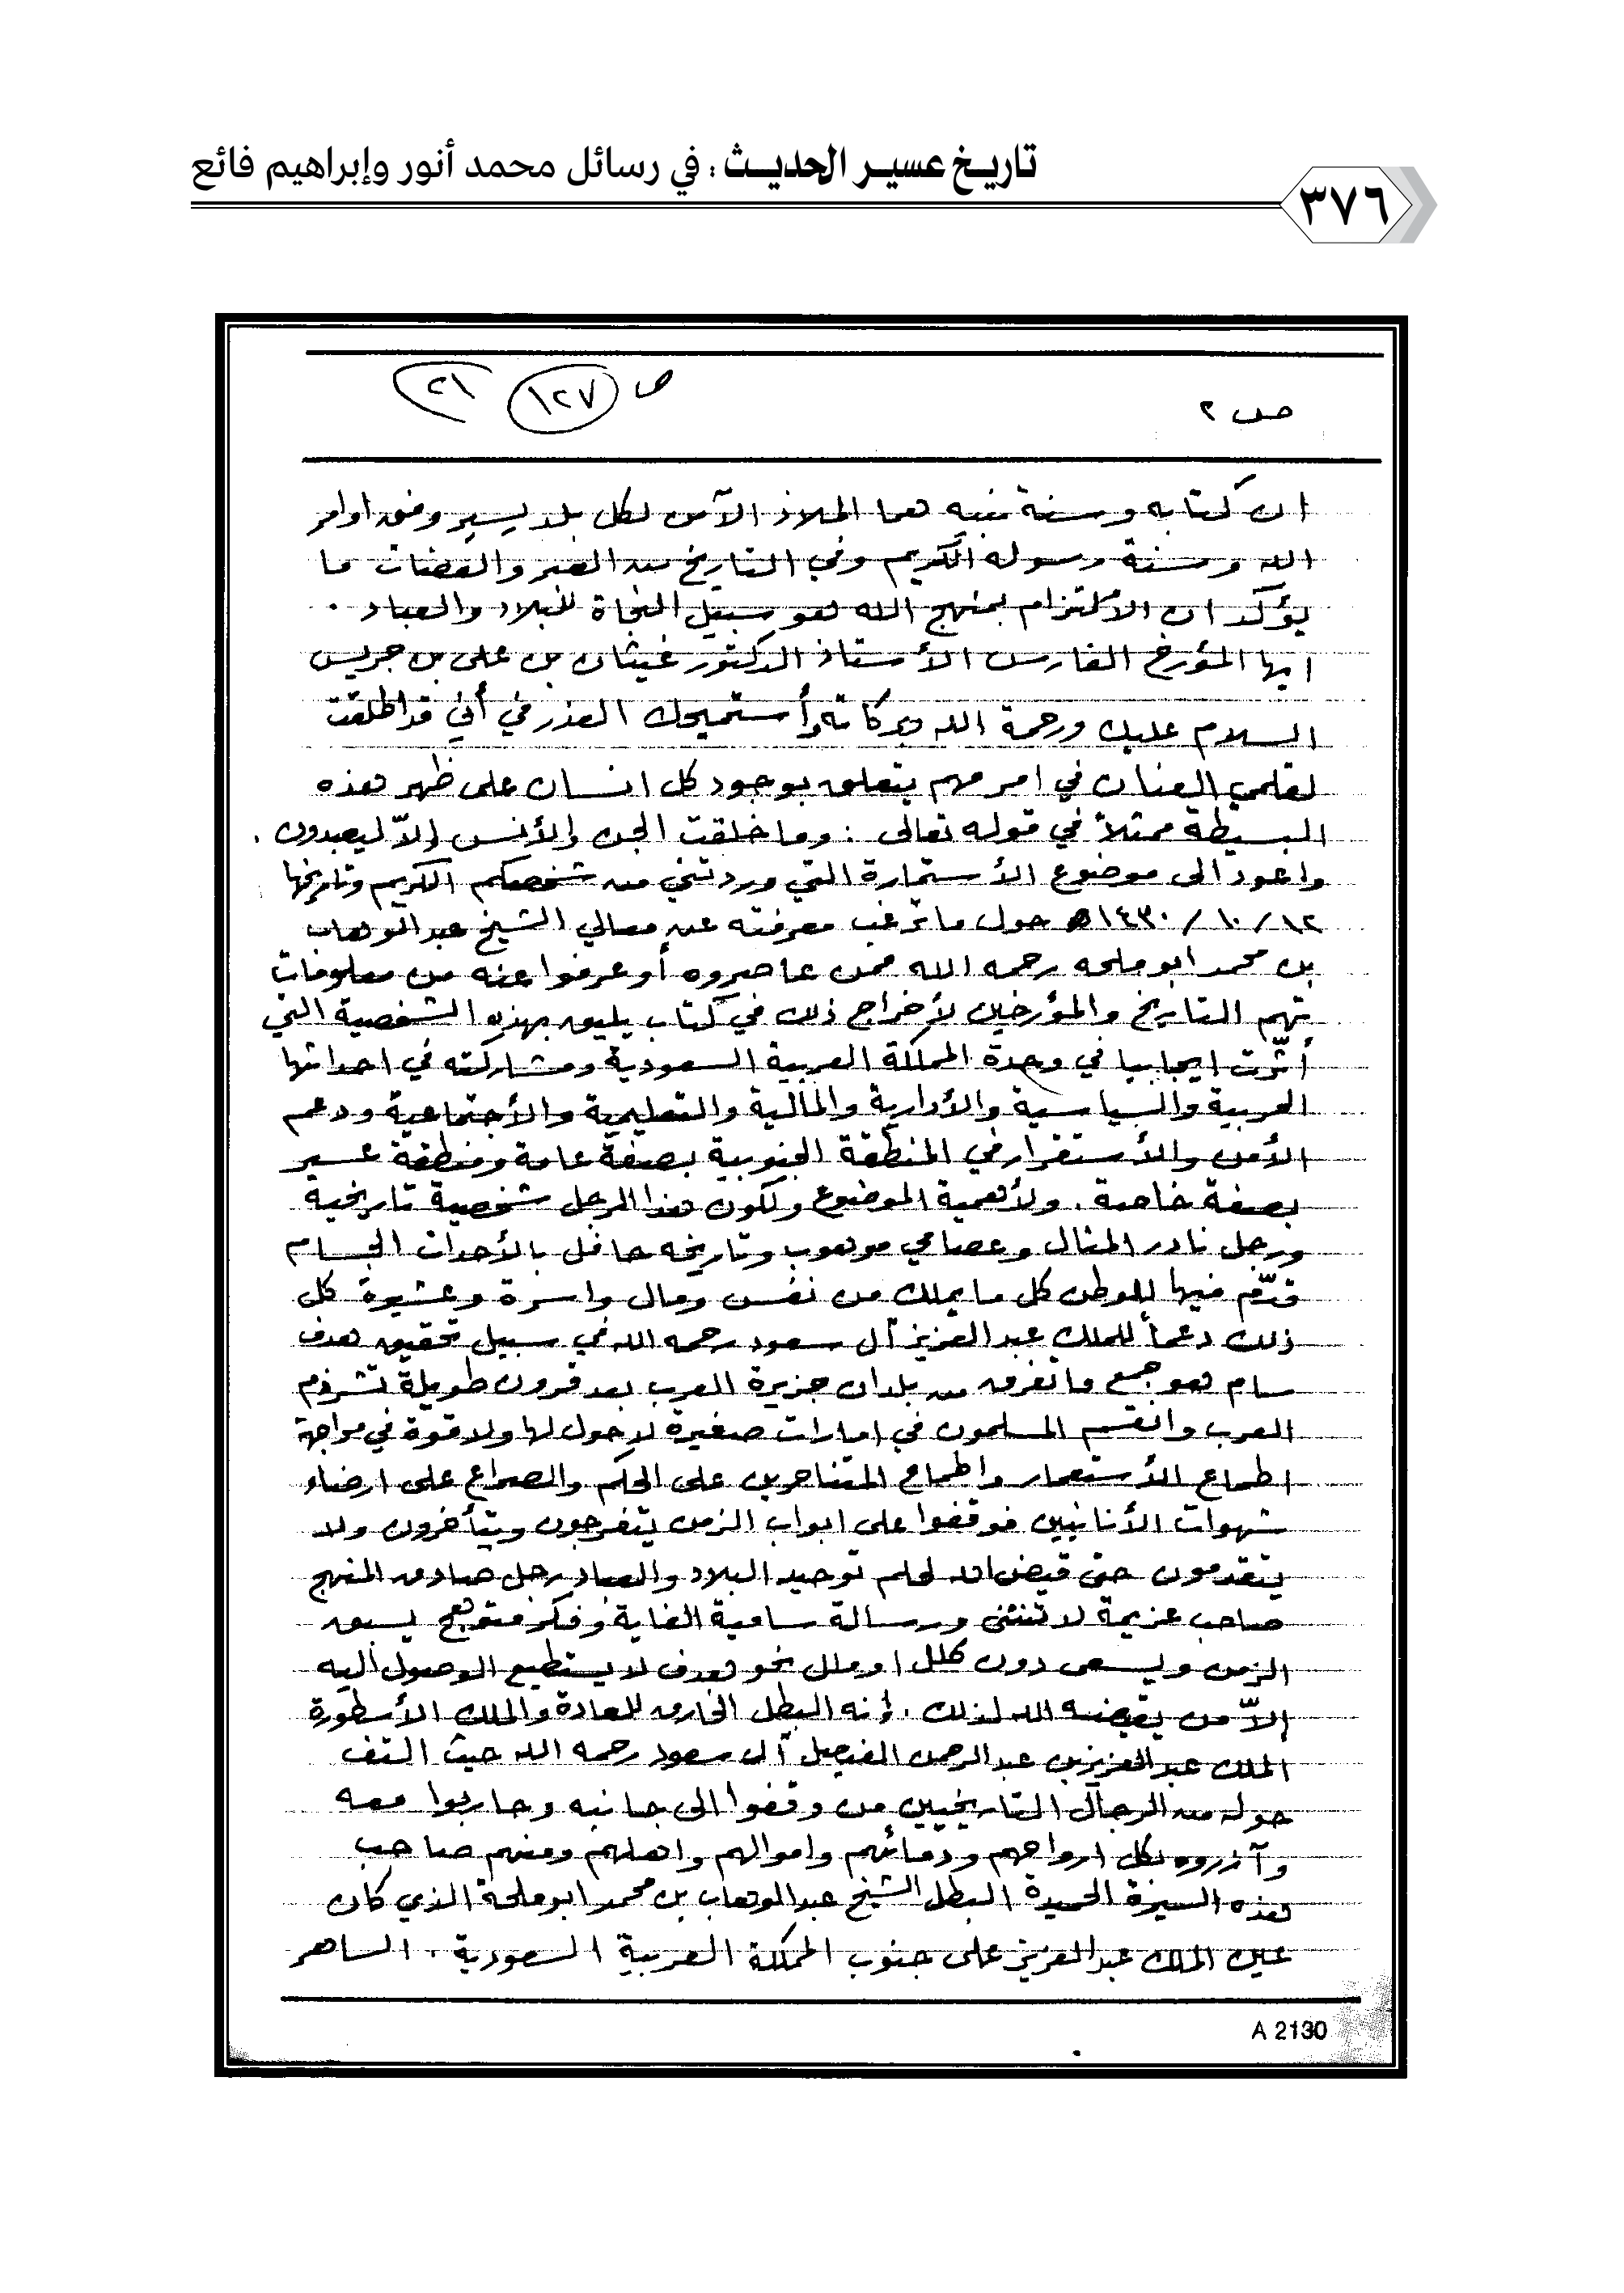 تاريخ عسير الحديث : في رسائل محمد أنور وإبراهيم فائع
٣٧٦
ص ٢
ص ١٢٧ ٢١
ان كتابه وسنة نبيه هما الملاذ الآمن لكل بلد يسير وفق اوامر
الله وسنة رسوله الكريم وفي التاريخ من العبر والعضات ما
يؤكد ان الالتزام بمنهج الله لهو سبيل النجاة للبلاد والعباد .
ايها المؤرخ الفارس الأستاذ الدكتور غيثان بن علي بن جريس
السلام عليك ورحمة الله وبركاته وأستميحك العذر في أني قد اطلقت
لقلمي العنان في امر مهم يتعلق بوجود كل انسان على ظهر هذه
البسيطة ممثلاً في قوله تعالى : وما خلقت الجن والأنس إلاّ ليعبدون .
واعود الى موضوع الأستمارة التي وردتني من شخصكم الكريم وتاريخها
١٢/ ١٠/ ١٤٣٠هـ حول ما ترغب معرفته عن معالي الشيخ عبد الوهاب
بن محمد ابو ملحه رحمه الله ممن عاصروه أو عرفوا عنه من معلومات
تهم التاريخ والمؤرخين لأخراج ذلك في كتاب يليق بهذه الشخصية التي
أثّرت ايجابيا في وحدة المملكة العربية السعودية ومشاركته في احداثها
الحربية والسياسية والأدارية والمالية والتعليمية والأجتماعية ودعم
الأمن والأستقرار في المنطقة الجنوبية بصفة عامة ومنطقة عسير
بصفة خاصة . ولأهمية الموضوع ولكون هذا الرجل شخصية تاريخيه
ورجل نادر المثال وعصامي موهوب وتاريخه حافل بالأحداث الجسام
قدّم فيها للوطن كل ما يملك من نفس ومال واسرة وعشيرة كل
ذلك دعماً للملك عبد العزيز آل سعود رحمه الله في سبيل تحقيق هدف
سام هو جمع ما تفرق من بلدان جزيرة العرب بعد قرون طويلة تشرذم
العرب وانقسم المسلمون في امارات صغيرة لا حول لها ولا قوة في مواجهة
اطماع الأستعمار واطماع المتناحرين على الحكم والصراع على ارضاء
شهوات الأنانيين فوقفوا على ابواب الزمن يتفرجون ويتأخرون ولا
يتقدمون حتى قيض الله لحلم توحيد البلاد والعباد رجل صادق المنهج
صاحب عزيمة لا تنثني ورسالة سامية الغاية وفكر متوهج يسبق
الزمن ويسعى دون كلل او ملل نحو هدف لا يستطيع الوصول اليه
إلاّ من يقيضه الله لذلك . إنه البطل الخارق للعادة والملك الأسطورة
الملك عبد العزيز بن عبد الرحمن الفيصل آل سعود رحمه الله حيث التف
حوله من الرجال التاريخيين من وقفوا الى جانبه وحاربوا معه
وآزروه بكل ارواحهم ودمائهم واموالهم واهلهم ومنهم صاحب
هذه السيرة الحميدة البطل الشيخ عبد الوهاب بن محمد ابو ملحة الذي كان
عين الملك عبد العزيز على جنوب المملكة العربية السعودية . الساهر
A 2130